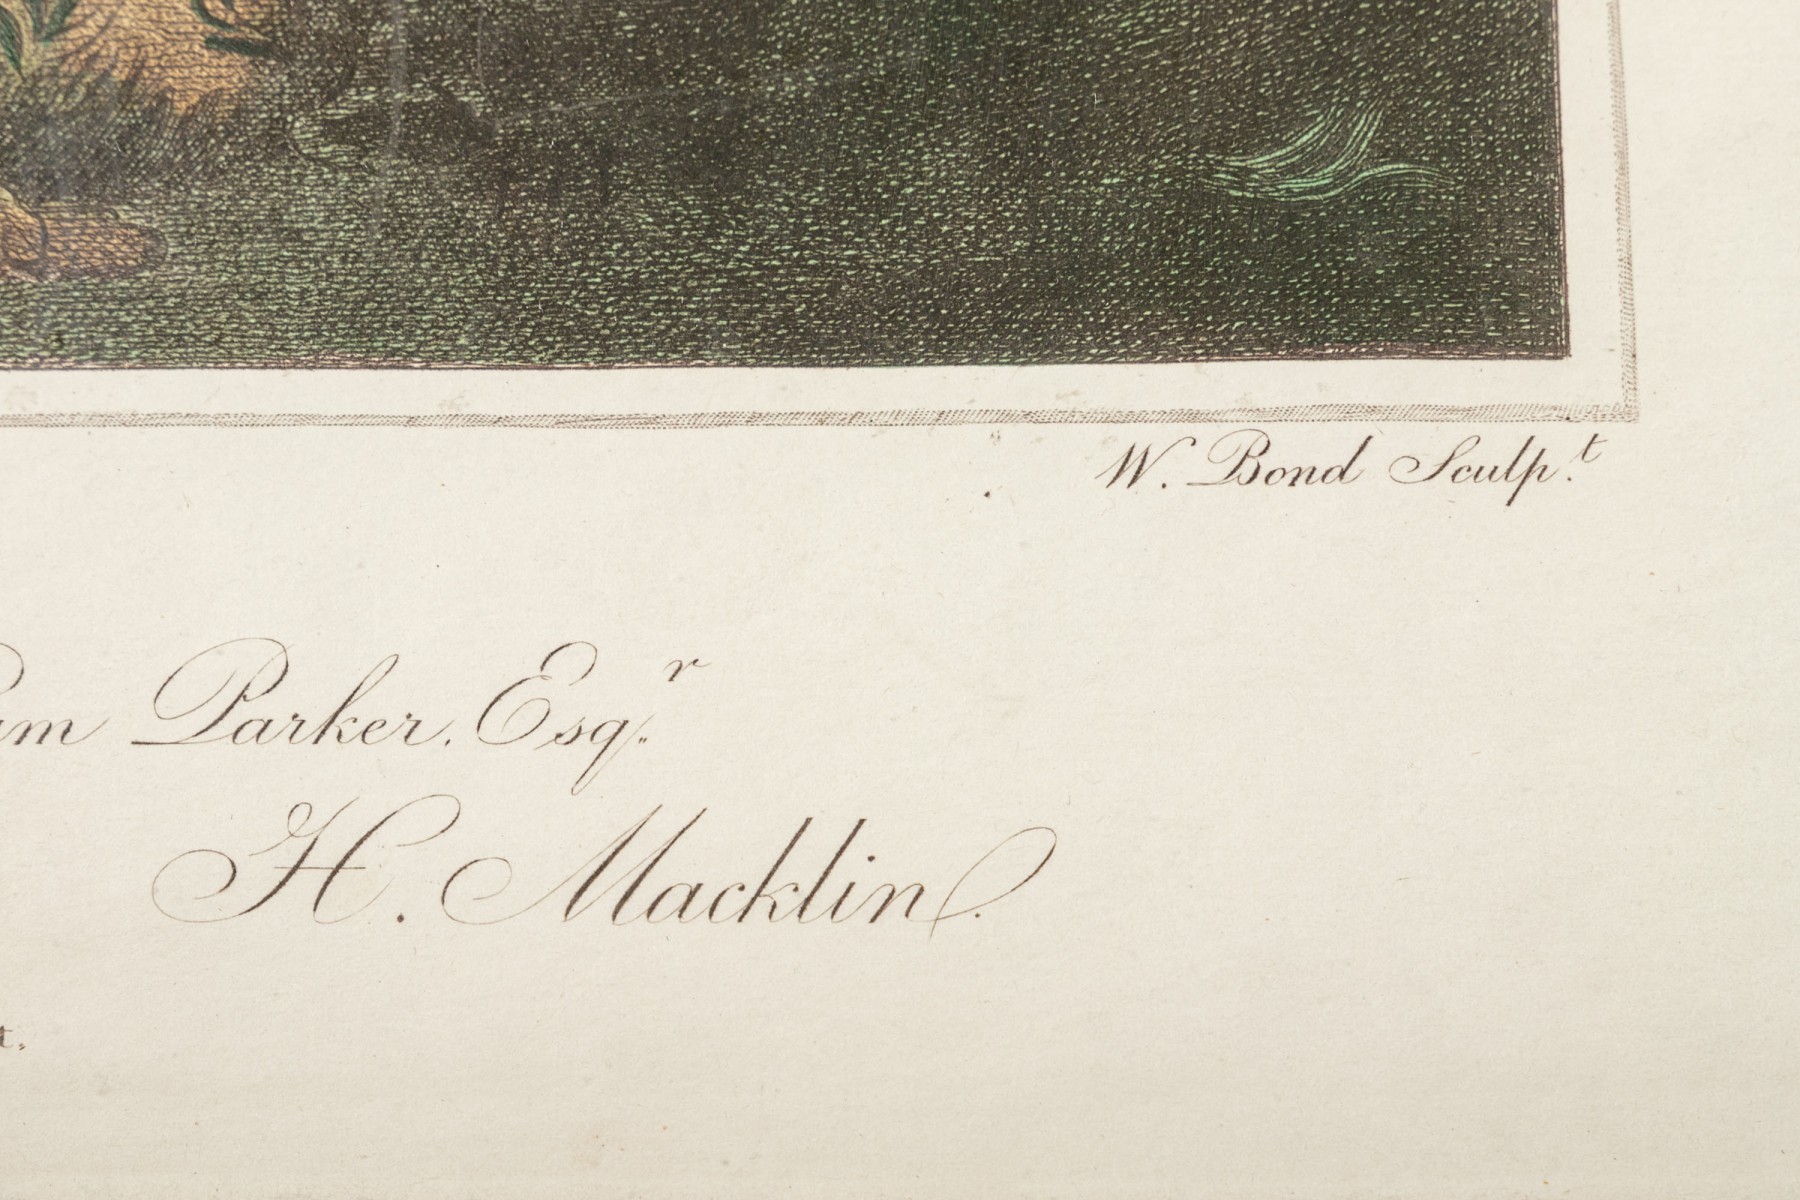 W. Bond Sculp.t
Parker. Esq.r
H. Macklin.